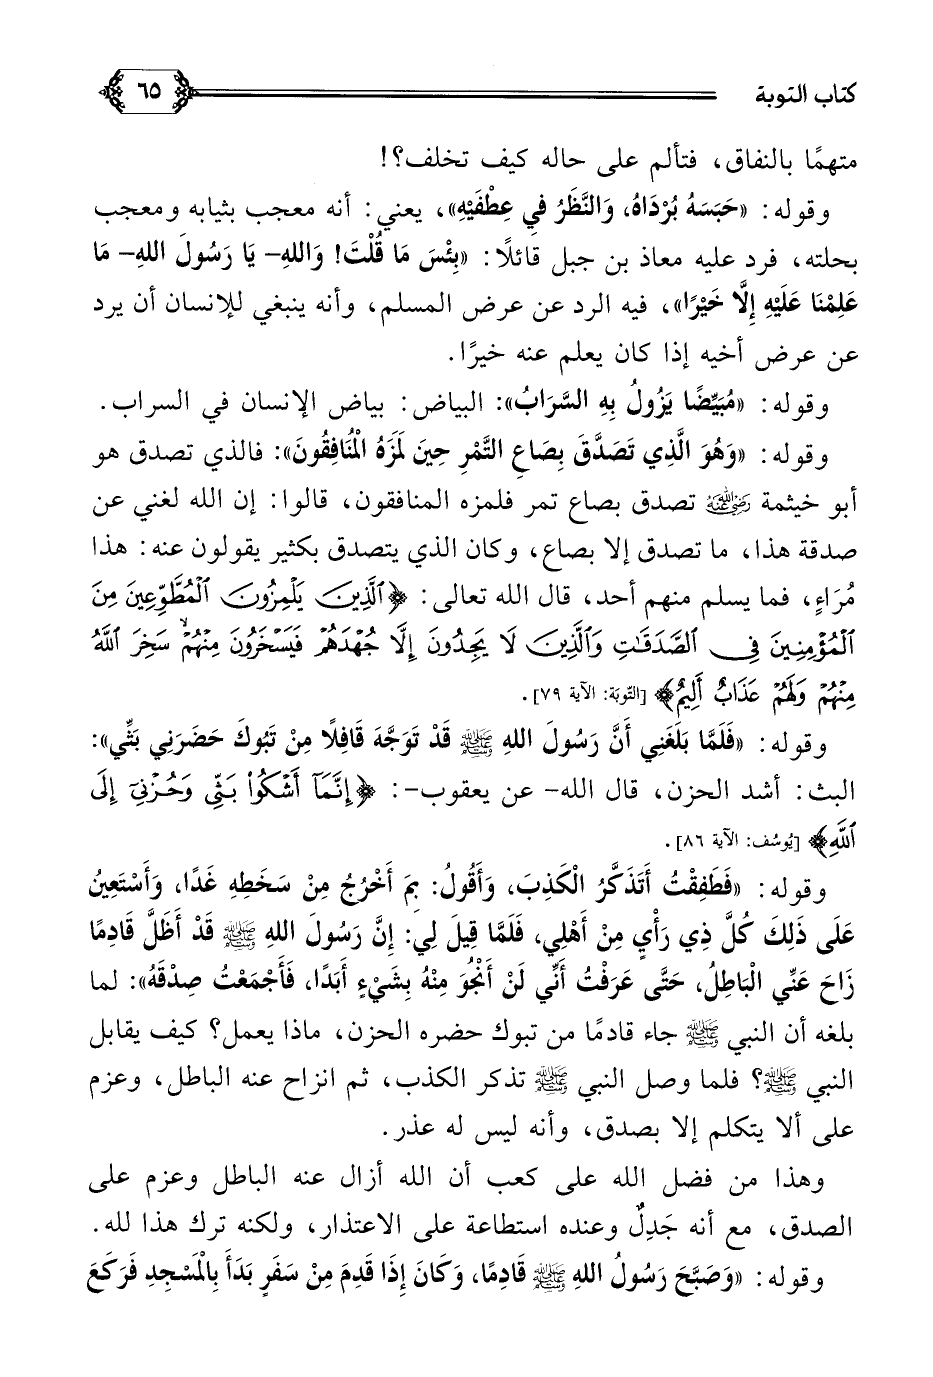 كتاب التوبة ٦٥
متهمًا بالنفاق، فتألم على حاله كيف تخلف؟!
وقوله: «حَبَسَهُ بُرْدَاهُ، وَالنَّظَرُ فِي عِطْفَيْهِ»، يعني: أنه معجب بثيابه ومعجب
بحلته، فرد عليه معاذ بن جبل قائلًا: «بِئْسَ مَا قُلْتَ! وَاللهِ- يَا رَسُولَ اللهِ- مَا
عَلِمْنَا عَلَيْهِ إِلَّا خَيْرًا»، فيه الرد عن عرض المسلم، وأنه ينبغي للإنسان أن يرد
عن عرض أخيه إذا كان يعلم عنه خيرًا.
وقوله: «مُبَيِّضًا يَزُولُ بِهِ السَّرَابُ»: البياض: بياض الإنسان في السراب.
وقوله: «وَهُوَ الَّذِي تَصَدَّقَ بِصَاعِ التَّمْرِ حِينَ لَمَزَهُ الْمُنَافِقُونَ»: فالذي تصدق هو
أبو خيثمة رضي الله عنه تصدق بصاع تمر فلمزه المنافقون، قالوا: إن الله لغني عن
صدقة هذا، ما تصدق إلا بصاع، وكان الذي يتصدق بكثير يقولون عنه: هذا
مُرَاءٍ، فما يسلم منهم أحد، قال الله تعالى: ﴿ٱلَّذِينَ يَلْمِزُونَ ٱلْمُطَّوِّعِينَ مِنَ
ٱلْمُؤْمِنِينَ فِى ٱلصَّدَقَٰتِ وَٱلَّذِينَ لَا يَجِدُونَ إِلَّا جُهْدَهُمْ فَيَسْخَرُونَ مِنْهُمْۙ سَخِرَ ٱللَّهُ
مِنْهُمْ وَلَهُمْ عَذَابٌ أَلِيمٌ﴾ [التَّوبَة: الآية ٧٩].
وقوله: «فَلَمَّا بَلَغَنِي أَنَّ رَسُولَ اللهِ ﷺ قَدْ تَوَجَّهَ قَافِلًا مِنْ تَبُوكَ حَضَرَنِي بَثِّي»:
البث: أشد الحزن، قال الله- عن يعقوب-: ﴿إِنَّمَآ أَشْكُوا۟ بَثِّى وَحُزْنِىٓ إِلَى
ٱللَّهِ﴾ [يُوسُف: الآية ٨٦].
وقوله: «فَطَفِقْتُ أَتَذَكَّرُ الْكَذِبَ، وَأَقُولُ: بِمَ أَخْرُجُ مِنْ سَخَطِهِ غَدًا، وَأَسْتَعِينُ
عَلَى ذَلِكَ كُلَّ ذِي رَأْيٍ مِنْ أَهْلِي، فَلَمَّا قِيلَ لِي: إِنَّ رَسُولَ اللهِ ﷺ قَدْ أَظَلَّ قَادِمًا
زَاحَ عَنِّي الْبَاطِلُ، حَتَّى عَرَفْتُ أَنِّي لَنْ أَنْجُوَ مِنْهُ بِشَيْءٍ أَبَدًا، فَأَجْمَعْتُ صِدْقَهُ»: لما
بلغه أن النبي ﷺ جاء قادمًا من تبوك حضره الحزن، ماذا يعمل؟ كيف يقابل
النبي ﷺ؟ فلما وصل النبي ﷺ تذكر الكذب، ثم انزاح عنه الباطل، وعزم
على ألا يتكلم إلا بصدق، وأنه ليس له عذر.
وهذا من فضل الله على كعب أن الله أزال عنه الباطل وعزم على
الصدق، مع أنه جَدِلٌ وعنده استطاعة على الاعتذار، ولكنه ترك هذا لله.
وقوله: «وَصَبَّحَ رَسُولُ اللهِ ﷺ قَادِمًا، وَكَانَ إِذَا قَدِمَ مِنْ سَفَرٍ بَدَأَ بِالْمَسْجِدِ فَرَكَعَ